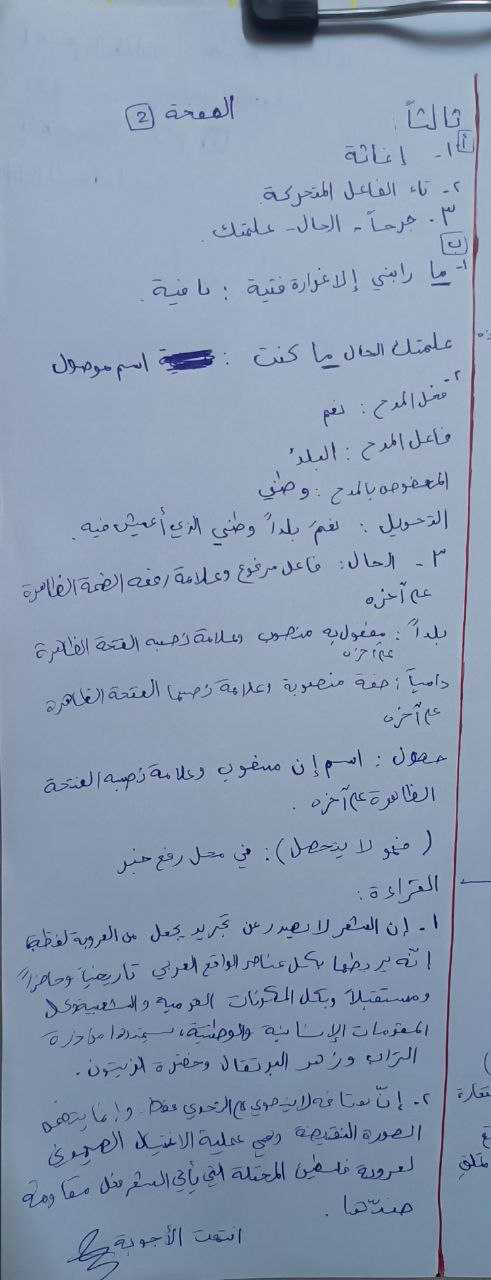 الصفحة 2
ثالثاً:
أ
١- إغاثة
٢- تاء الفاعل المتحركة
٣. جرحاً - الحال - علمتك.
ب
١- ما رابني إلا غوارة فتية : نافية.
علمتك الحال ما كنت : اسم موصول
٢- فعل المدح : نعم
فاعل المدح : البلدُ
المخصوص بالمدح : وطني
التحويل : نعمَ بلداً وطني الذي أعيش فيه.
٣ - الحال : فاعل مرفوع وعلامة رفعه الضمة الظاهرة
على آخره
بلداً : مفعول به منصوب وعلامة نصبه الفتحة الظاهرة
على آخره
دامياً : صفة منصوبة وعلامة نصبها الفتحة الظاهرة
على آخره
حصول : اسم إن منصوب وعلامة نصبه الفتحة
الظاهرة على آخره.
( فهو لا يتحصل ) : في محل رفع خبر
القراءة :
١- إن الشعر لا يصدر عن تجريد يجعل من العروبة لفظة
إنه يربطها بكل عناصر الواقع العربي تاريخياً وحاضراً
ومستقبلاً وبكل المكونات القومية والشعبية وكل
المقومات الإنسانية والوطنية، يستمدها من ذرة
التراب وزهر البرتقال وخضرة الزيتون.
٢- إنّ لا ينضوي على التحدي فقط وإنما يتضمن
الصورة النقيضة وهي عملية الاغتيال الصهيوني
لعروبة فلسطين المحتلة التي يأتي الشعر فعل مقاومة
ضدّها.
انتهت الأجوبة